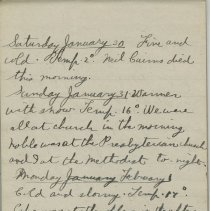 Saturday January 30 Fine and
cold. Temp. 2° Neil Cairns died
this morning.
Sunday January 31 Warmer
with snow Temp. 16° We were
all at church in the morning
was at the Presbyterian church
and I at the Methodist to-night.
Monday January February 1
Cold and starry. Temp.